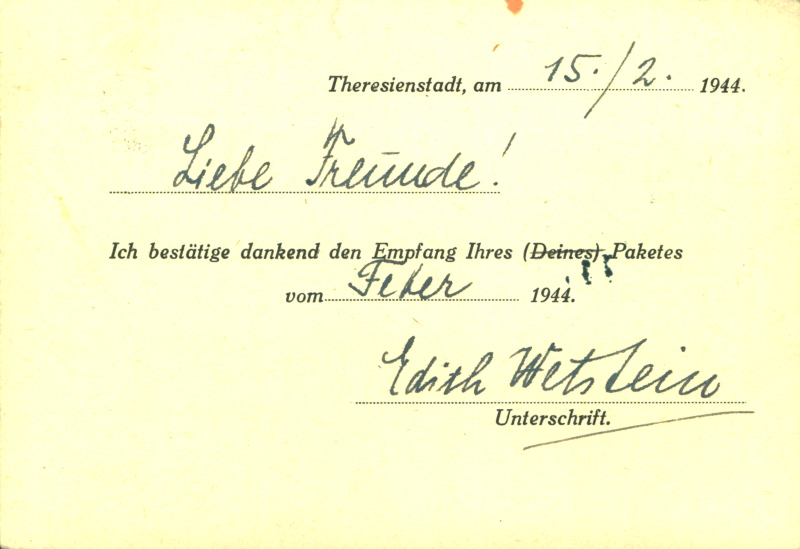 Theresienstadt, am 15./2. 1944.
Liebe Freunde!
Ich bestätige dankend den Empfang Ihres (Deines) Paketes
vom Feber 1944.
Edith Wetstein
Unterschrift.